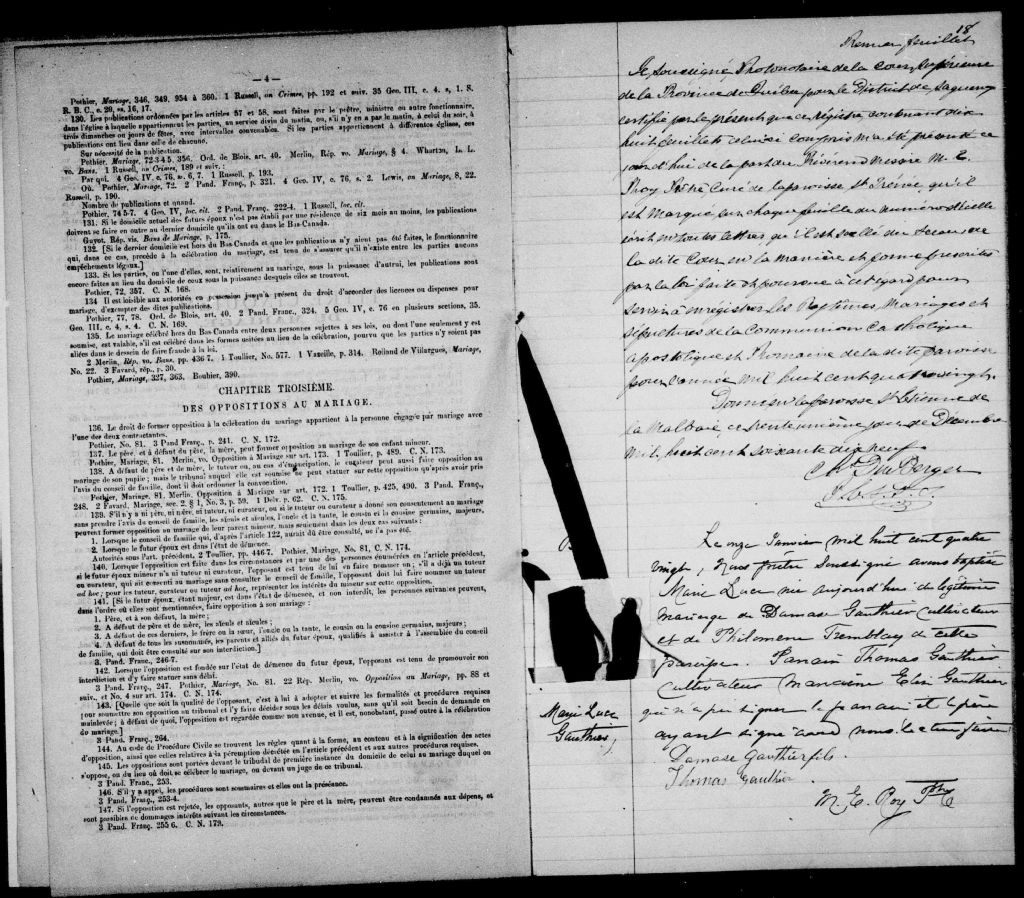 — 4 —
Pothier, Mariage, 346, 349, 954 à 360. 1 Russell, on Crimes, pp. 192 et suiv. 35 Geo. III, c. 4. s, 1. S.
R. B. C., c. 20, ss. 16, 17.
130. Les publications ordonnées par les articles 57 et 58, sont faites par le prêtre, ministre ou autre fonctionnaire,
dans l'église à laquelle appartiennent les parties, au service divin du matin, ou, s'il n'y en a pas le matin, à celui du soir, à
trois dimanches ou jours de fêtes, avec intervalles convenables. Si les parties appartiennent à différentes églises, ces
publications ont lieu dans celle de chacune.
Sur nécessité de la publication.
Pothier, Mariage, 72-3-4-5. 356. Ord. de Blois. art. 40. Merlin, Rép. vo. Mariage, § 4. Wharton, L. L.
vo. Bans. 1 Russell, on Crimes, 189 et suiv.
Par qui. 4 Geo. IV, c. 76, s. 6, 7. 1 Russell, p. 193.
Où. Pothier, Mariage, 72. 2 Pand. Franç., p. 321. 4 Geo. IV, c. 76, s. 2. Lewis, on Mariage, 8, 22.
Russell, p. 190.
Nombre de publications et quand.
Pothier, 74 5-7. 4 Geo. IV, loc. cit. 2 Pand. Franç., 222-4. 1 Russell, loc. cit.
131. Si le domicile actuel des futurs époux n'est pas établi par une résidence de six mois au moins, les publications
doivent se faire en outre au dernier domicile qu'ils ont eu dans le Bas-Canada.
Guyot. Rép. vis. Bans de Mariage, p. 175.
132. [Si le dernier domicile est hors du Bas-Canada et que les publications n'y aient pas été faites, le fonctionnaire
qui, dans ce cas, procède à la célébration du mariage, est tenu de s'assurer qu'il n'existe entre les parties aucuns
empêchements légaux.]
133. Si les parties, ou l'une d'elles, sont, relativement au mariage, sous la puissance d'autrui, les publications sont
encore faites au lieu du domicile de ceux sous la puissance desquels elles se trouvent.
Pothier, 72, 357. C. N. 168.
134 Il est loisible aux autorités en possession jusqu'à présent du droit d'accorder des licences ou dispenses pour
mariage, d'exempter des dites publications.
Pothier, 77, 78. Ord. de Blois, art. 40. 2 Pand. Franc., 324. 5 Geo. IV, c. 76 en plusieurs sections. 35.
Geo. III, c. 4, s. 4. C. N. 169.
135. Le mariage célébré hors du Bas-Canada entre deux personnes sujettes à ses lois, ou dont l'une seulement y est
soumise, est valable, s'il est célébré dans les formes usitées au lieu de la célébration, pourvu que les parties n'y soient pas
allées dans le dessein de faire fraude à la loi.
2 Merlin, Rép. vo. Bans. pp. 436 7. 1 Toullier, No. 577. 1 Vazeille, p. 314. Rolland de Villargues, Mariage,
No. 22. 3 Favard, rép., p. 30.
Pothier, Mariage, 327, 363. Bouhier, 390.
CHAPITRE TROISIÈME.
DES OPPOSITIONS AU MARIAGE.
136. Le droit de former opposition à la célébration du mariage appartient à la personne engagée par mariage avec
l'une des deux contractantes.
Pothier, No. 81. 3 Pand Franç., p. 241. C. N. 172.
137. Le père, et à défaut du père, la mère, peut former opposition au mariage de son enfant mineur.
Pothier, Mariage, 81. Merlin vo. Opposition à Mariage sur art. 173. 1 Toullier, p. 489. C. N. 173.
138. A défaut de père et de mère, le tuteur ou, au cas d'émancipation, le curateur peut aussi faire opposition au
mariage de son pupille; mais le tribunal auquel elle est soumise ne peut statuer sur cette opposition qu'après avoir pris
l'avis du conseil de famille, dont il doit ordonner la convocation.
Pothier, Mariage, 81. Merlin. Opposition à Mariage sur art. 172. 1 Toullier, p. 425, 490. 3 Pand. Franç.,
248. 2 Favard, Mariage, sec. 2. § 1, No. 3, p. 59. 1 Delv. p. 62. C. N. 175.
139. S'il n'y a ni père, ni mère, ni tuteur, ni curateur, ou si le tuteur ou curateur a donné son consentement au mariage
sans prendre l'avis du conseil de famille, les aïeuls et aïeules, l'oncle et la tante, le cousin et la cousine germains, majeurs,
peuvent former opposition au mariage de leur parent mineur, mais seulement dans les deux cas suivants:
1. Lorsque le conseil de famille qui, d'après l'article 122, aurait dû être consulté, ne l'a pas été.
2. Lorsque le futur époux est dans l'état de démence.
Autorités sous l'art. précédent, 2 Toullier, pp. 446-7. Pothier, Mariage, No. 81, C. N. 174.
140. Lorsque l'opposition est faite dans les circonstances et par une des personnes énumérées en l'article précédent,
si le futur époux mineur n'a ni tuteur ni curateur, l'opposant est tenu de lui en faire nommer un; s'il a déjà un tuteur
ou curateur, qui ait consenti au mariage sans consulter le conseil de famille, l'opposant doit lui faire nommer un tuteur
ad hoc; pour les tuteur, curateur ou tuteur ad hoc, représenter les intérêts du mineur sur cette opposition.
141. [Si le futur époux, étant majeur, est dans l'état de démence, et non interdit, les personnes suivantes peuvent,
dans l'ordre où elles sont mentionnées, faire opposition à son mariage:
1. Père, et à son défaut, la mère;
2. A défaut de père et de mère, les aïeuls et aïeules;
3. A défaut de ces derniers, le frère ou la sœur, l'oncle ou la tante, le cousin ou la cousine germains, majeurs;
4. A défaut de tous les susnommés, les parents et alliés du futur époux, qualifiés à assister à l'assemblée du conseil
de famille, qui doit être consulté sur son interdiction.]
3. Pand. Franc., 246-7.
142. Lorsque l'opposition est fondée sur l'état de démence du futur époux, l'opposant est tenu de promouvoir son
interdiction et d'y faire statuer sans délai.
3 Pand. Franç., 247. Pothier, Mariage, No. 81. 22 Rép. Merlin, vo. Opposition au Mariage, pp. 88 et
suiv., et No. 4 sur art. 174. C. N. 174.
143. [Quelle que soit la qualité de l'opposant, c'est à lui à adopter et suivre les formalités et procédures requises
pour soumettre son opposition au tribunal et l'y faire décider dans les délais voulus, sans qu'il soit besoin de demande en
mainlevée; à défaut de quoi, l'opposition est regardée comme non avenue, et il est, nonobstant, passé outre à la célébration
du mariage.]
3 Pand. Franç., 264.
144. Au code de Procédure Civile se trouvent les règles quant à la forme, au contenu et à la signification des actes
d'opposition, ainsi que celles relatives à la péremption décrétée en l'article précédent et aux autres procédures requises.
145. Les oppositions sont portées devant le tribunal de première instance du domicile de celui au mariage duquel on
s'oppose, ou du lieu où doit se célébrer le mariage, ou devant un juge de ce tribunal.
3 Pand. Franc., 253.
146. S'il y a appel, les procédures sont sommaires et elles ont la préséance.
3 Pand. Franç., 253-4.
147. Si l'opposition est rejetée, les opposants, autres que le père et la mère, peuvent être condamnés aux dépens, et
sont passibles de dommages intérêts suivant les circonstances.
3 Pand. Franç. 255 6. C. N. 179.
18
feuillet
Je, Soussigné, Protonotaire de la Cour Supérieure
de la Province de Québec pour le District de Saguenay
certifie par le présent que ce régistre contenant dix
huit feuillets celui-ci compris m'a été présenté ce
jourd'hui de la part du Révérend Messire M. E.
Roy Prêtre, Curé de la paroisse St. Irénée, qu'il
est Marqué sur chaque feuillet du numéro d'icelle
écrit en toutes lettres, qu'il est scellé du Sceau de
la dite Cour en la manière et forme prescrites
par la loi faite et pourvue à cet égard pour
servir à enregistrer les Baptêmes, Mariages et
Sépultures de la Communion Catholique
Apostolique et Romaine de la dite paroisse
pour l'année mil huit cent quatre vingt.
Donné en la paroisse St. Etienne de
la Malbaie, ce trente unième jour de Décembre
mil huit cent soixante dix neuf
Chs DuBerger
P. C. S.
Le onze Janvier mil huit cent quatre
vingt, Nous prêtre Soussigné avons baptisé
Marie Luce née aujourd'hui du légitime
mariage de Damase Gauthier cultivateur
et de Philomène Tremblay de cette
paroisse. Parrain Thomas Gauthier
cultivateur marraine Elisé Gauthier
qui n'a pu signer le parrain et le père
ayant signé avec nous. Lecture faite.
Marie Luce
Gauthier,
Damase Gauthier fils.
Thomas Gauthier
M. E. Roy Ptre